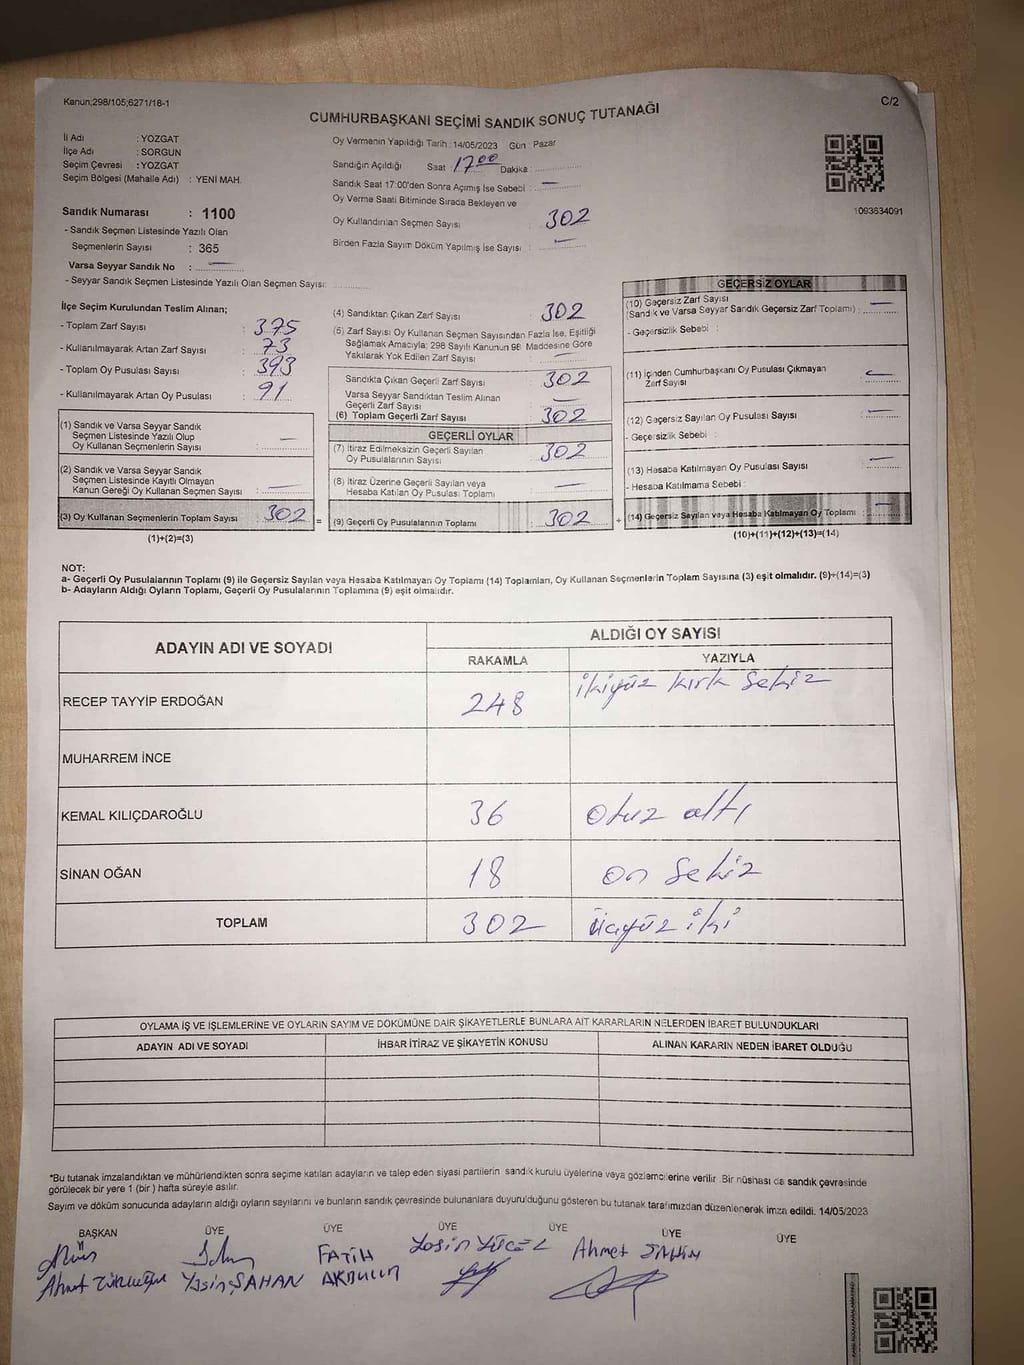 Kanun;298/105;6271/18-1
C/2
CUMHURBAŞKANI SEÇİMİ SANDIK SONUÇ TUTANAĞI
İl Adı : YOZGAT
İlçe Adı : SORGUN
Seçim Çevresi : YOZGAT
Seçim Bölgesi (Mahalle Adı) : YENİ MAH.
Oy Vermenin Yapıldığı Tarih : 14/05/2023 Gün : Pazar
Sandığın Açıldığı Saat : 17 00 Dakika :
Sandık Saat 17:00'den Sonra Açımış İse Sebebi : —
Oy Verme Saati Bitiminde Sırada Bekleyen ve
Oy Kullandırılan Seçmen Sayısı : 302
Birden Fazla Sayım Döküm Yapılmış İse Sayısı : —
1093634091
Sandık Numarası : 1100
- Sandık Seçmen Listesinde Yazılı Olan
Seçmenlerin Sayısı : 365
Varsa Seyyar Sandık No : —
- Seyyar Sandık Seçmen Listesinde Yazılı Olan Seçmen Sayısı:
İlçe Seçim Kurulundan Teslim Alınan;
- Toplam Zarf Sayısı : 375
- Kullanılmayarak Artan Zarf Sayısı : 73
- Toplam Oy Pusulası Sayısı : 393
- Kullanılmayarak Artan Oy Pusulası : 91
(1) Sandık ve Varsa Seyyar Sandık
Seçmen Listesinde Yazılı Olup
Oy Kullanan Seçmenlerin Sayısı : —
(2) Sandık ve Varsa Seyyar Sandık
Seçmen Listesinde Kayıtlı Olmayan
Kanun Gereği Oy Kullanan Seçmen Sayısı : —
(3) Oy Kullanan Seçmenlerin Toplam Sayısı : 302 =
(1)+(2)=(3)
(4) Sandıktan Çıkan Zarf Sayısı : 302
(5) Zarf Sayısı Oy Kullanan Seçmen Sayısından Fazla İse, Eşitliği
Sağlamak Amacıyla; 298 Sayılı Kanunun 98. Maddesine Göre
Yakılarak Yok Edilen Zarf Sayısı : —
Sandıkta Çıkan Geçerli Zarf Sayısı : 302
Varsa Seyyar Sandıktan Teslim Alınan
Geçerli Zarf Sayısı : —
(6) Toplam Geçerli Zarf Sayısı : 302
GEÇERLİ OYLAR
(7) İtiraz Edilmeksizin Geçerli Sayılan
Oy Pusulalarının Sayısı : 302
(8) İtiraz Üzerine Geçerli Sayılan veya
Hesaba Katılan Oy Pusulası Toplamı : —
(9) Geçerli Oy Pusulalarının Toplamı : 302 +
GEÇERSİZ OYLAR
(10) Geçersiz Zarf Sayısı
(Sandık ve Varsa Seyyar Sandık Geçersiz Zarf Toplamı) : —
- Geçersizlik Sebebi :
(11) İçinden Cumhurbaşkanı Oy Pusulası Çıkmayan
Zarf Sayısı : —
(12) Geçersiz Sayılan Oy Pusulası Sayısı : —
- Geçersizlik Sebebi :
(13) Hesaba Katılmayan Oy Pusulası Sayısı : —
- Hesaba Katılmama Sebebi :
(14) Geçersiz Sayılan veya Hesaba Katılmayan Oy Toplamı : —
(10)+(11)+(12)+(13)=(14)
NOT:
a- Geçerli Oy Pusulalarının Toplamı (9) ile Geçersiz Sayılan veya Hesaba Katılmayan Oy Toplamı (14) Toplamları, Oy Kullanan Seçmenlerin Toplam Sayısına (3) eşit olmalıdır. (9)+(14)=(3)
b- Adayların Aldığı Oyların Toplamı, Geçerli Oy Pusulalarının Toplamına (9) eşit olmalıdır.
ADAYIN ADI VE SOYADI
ALDIĞI OY SAYISI
RAKAMLA YAZIYLA
RECEP TAYYİP ERDOĞAN 248 ikiyüz kırk sekiz
MUHARREM İNCE
KEMAL KILIÇDAROĞLU 36 otuz altı
SİNAN OĞAN 18 on sekiz
TOPLAM 302 üçyüz iki
OYLAMA İŞ VE İŞLEMLERİNE VE OYLARIN SAYIM VE DÖKÜMÜNE DAİR ŞİKAYETLERLE BUNLARA AİT KARARLARIN NELERDEN İBARET BULUNDUKLARI
ADAYIN ADI VE SOYADI İHBAR İTİRAZ VE ŞİKAYETİN KONUSU ALINAN KARARIN NEDEN İBARET OLDUĞU
*Bu tutanak imzalandıktan ve mühürlendikten sonra seçime katılan adayların ve talep eden siyasi partilerin sandık kurulu üyelerine veya gözlemcilerine verilir. Bir nüshası da sandık çevresinde
görülecek bir yere 1 (bir) hafta süreyle asılır.
Sayım ve döküm sonucunda adayların aldığı oyların sayılarını ve bunların sandık çevresinde bulunanlara duyurulduğunu gösteren bu tutanak tarafımızdan düzenlenerek imza edildi. 14/05/2023
BAŞKAN ÜYE ÜYE ÜYE ÜYE ÜYE ÜYE
Yasin YÜCEL Ahmet ŞAHİN
FATİH
Ahmet Yasin ŞAHAN AKBULUT